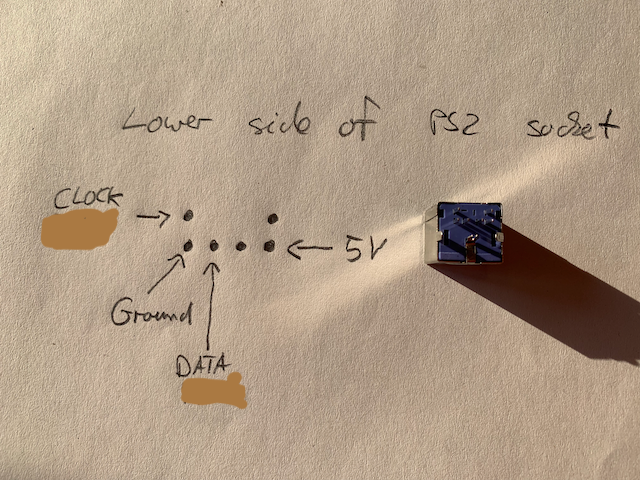 Lower side of PS2 socket
CLOCK
5V
Ground
DATA